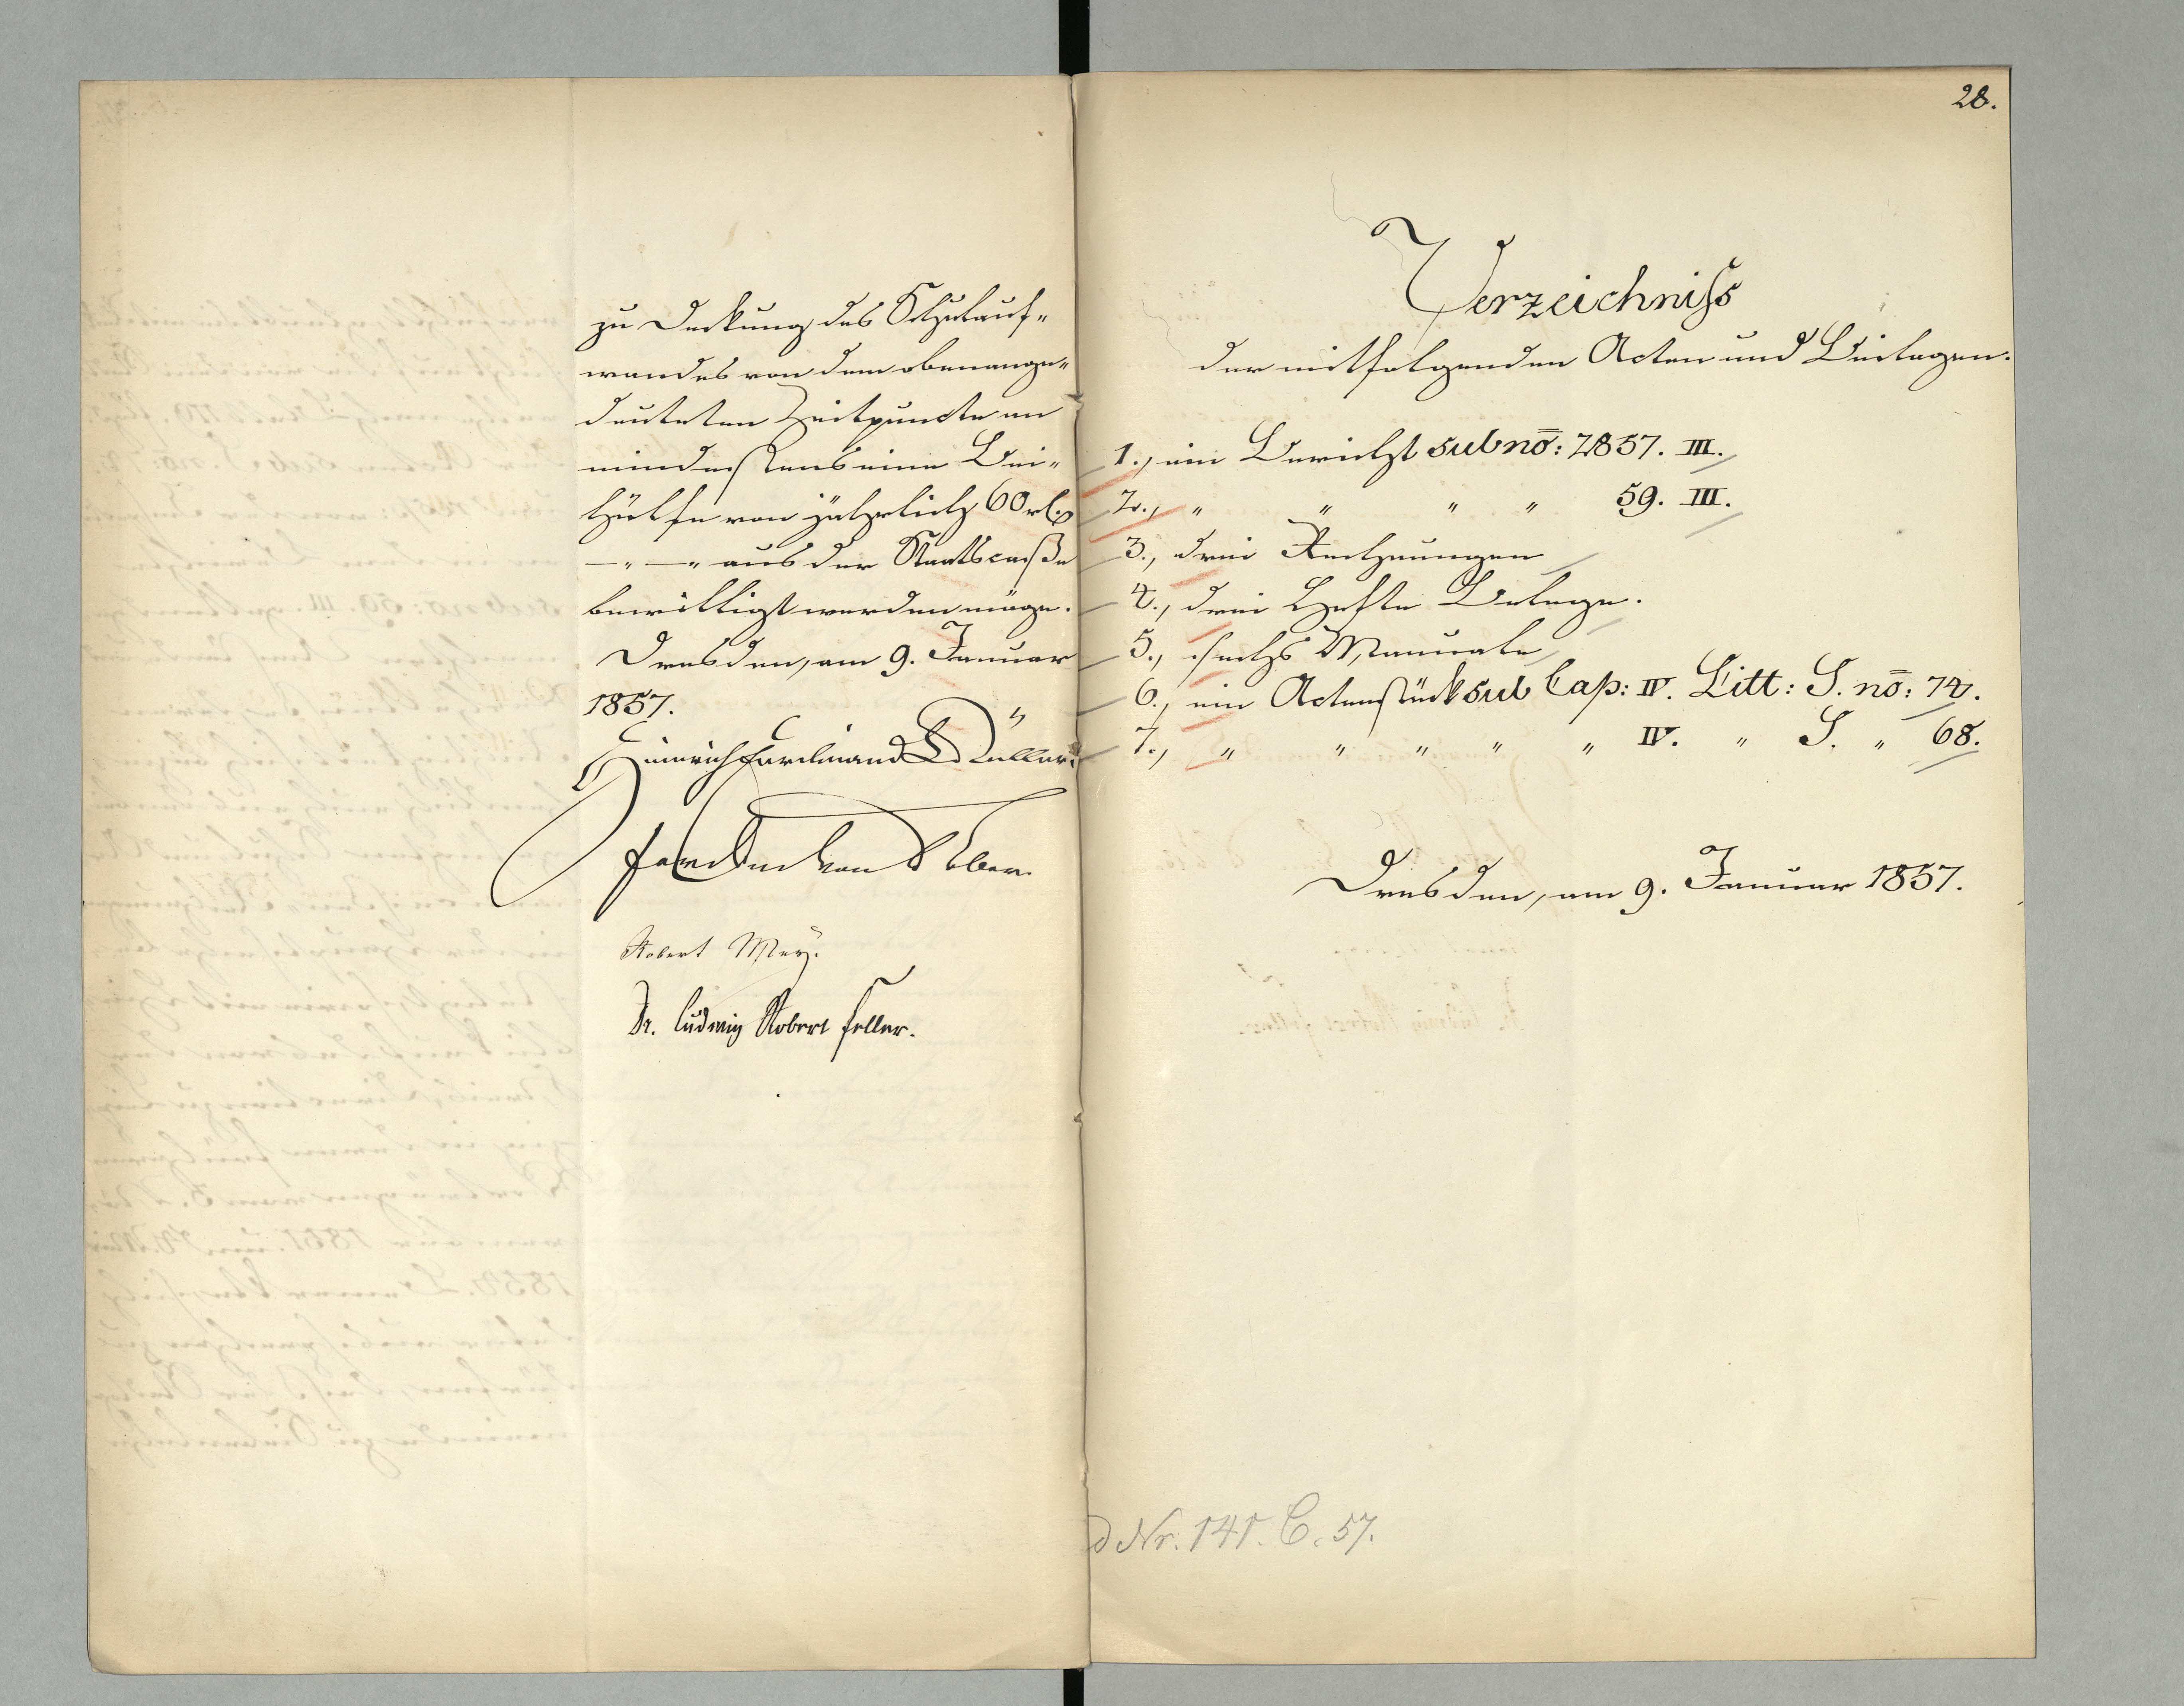 zu Deckung des Schulauf-
wandes von dem obenange-
deuteten Zeitpuncte an
mindestens eine Bei-
hülfe von jährlich 60 rl.
—"—" aus der Staatscasse
bewilligt werden möge.
Dresden, am 9. Januar
1857.
Heinrich Ferdinand Müller
Robert Mey.
Dr. Ludwig Robert Feller.
28.
Verzeichniss
der mitfolgenden Acten und Beilagen.
1., ein Bericht sub no: 2857. III.
2., " " " " 59. III.
3., drei Rechnungen
4., drei Hefte Belege.
5., sechs Manuale
6., ein Actenstück sub Cap: IV. Litt: S. no: 74.
7., " " " " " IV. " S. " 68.
Dresden, am 9. Januar 1857.
d Nr. 141. C. 57.